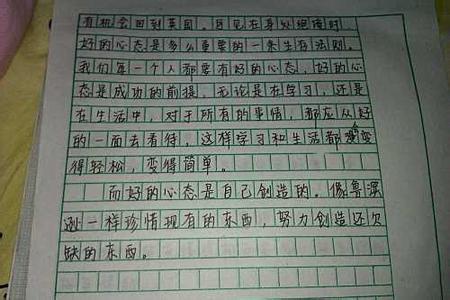 有机会回到英国。可见在身处绝境时，
好的心态是多么重要的一条生存法则。
我们每一个人都要有好的心态，好的心
态是成功的前提，无论是在学习，还是
在生活中，对于所有的事情，都应从好
的一面去看待，这样学习和生活都变
得轻松，变得简单。
而好的心态是自己创造的。像鲁滨
逊一样珍惜现有的东西，努力创造还欠
缺的东西。